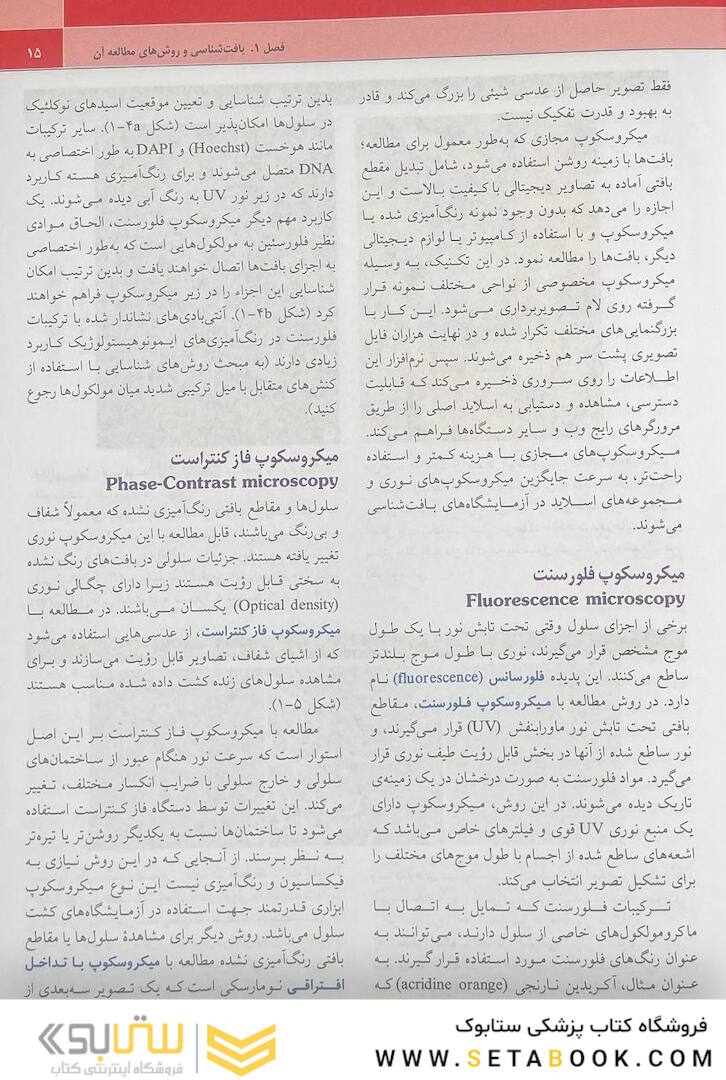 فصل ۱. بافت‌شناسی و روش‌های مطالعه آن
۱۵
فقط تصویر حاصل از عدسی شیئی را بزرگ می‌کند و قادر
به بهبود و قدرت تفکیک نیست.
میکروسکوپ مجازی که به‌طور معمول برای مطالعه؛
بافت‌ها با زمینه روشن استفاده می‌شود، شامل تبدیل مقطع
بافتی آماده به تصاویر دیجیتالی با کیفیت بالاست و این
اجازه را می‌دهد که بدون وجود نمونه رنگ‌آمیزی شده یا
میکروسکوپ و با استفاده از کامپیوتر یا لوازم دیجیتالی
دیگر، بافت‌ها را مطالعه نمود. در این تکنیک، به وسیله
میکروسکوپ مخصوصی از نواحی مختلف نمونه قرار
گرفته روی لام تصویربرداری می‌شود. این کار با
بزرگنمایی‌های مختلف تکرار شده و در نهایت هزاران فایل
تصویری پشت سر هم ذخیره می‌شوند. سپس نرم‌افزار این
اطلاعات را روی سروری ذخیره می‌کند که قابلیت
دسترسی، مشاهده و دستیابی به اسلاید اصلی را از طریق
مرورگرهای رایج وب و سایر دستگاه‌ها فراهم می‌کند.
میکروسکوپ‌های مجازی با هزینه کمتر و استفاده
راحت‌تر، به سرعت جایگزین میکروسکوپ‌های نوری و
مجموعه‌های اسلاید در آزمایشگاه‌های بافت‌شناسی
می‌شوند.
میکروسکوپ فلورسنت
Fluorescence microscopy
برخی از اجزای سلول وقتی تحت تابش نور با یک طول
موج مشخص قرار می‌گیرند، نوری با طول موج بلندتر
ساطع می‌کنند. این پدیده فلورسانس (fluorescence) نام
دارد. در روش مطالعه با میکروسکوپ فلورسنت، مقاطع
بافتی تحت تابش نور ماورابنفش (UV) قرار می‌گیرند، و
نور ساطع شده از آنها در بخش قابل رؤیت طیف نوری قرار
می‌گیرد. مواد فلورسنت به صورت درخشان در یک زمینه‌ی
تاریک دیده می‌شوند. در این روش، میکروسکوپ دارای
یک منبع نوری UV قوی و فیلترهای خاص می‌باشد که
اشعه‌های ساطع شده از اجسام با طول موج‌های مختلف را
برای تشکیل تصویر انتخاب می‌کند.
ترکیبات فلورسنت که تمایل به اتصال با
ماکرومولکول‌های خاصی از سلول دارند، می‌توانند به
عنوان رنگ‌های فلورسنت مورد استفاده قرار گیرند. به
عنوان مثال، آکریدین نارنجی (acridine orange) که
بدین ترتیب شناسایی و تعیین موقعیت اسیدهای نوکلئیک
در سلول‌ها امکان‌پذیر است (شکل ۴a-۱). سایر ترکیبات
مانند هوخست (Hoechst) و DAPI به طور اختصاصی به
DNA متصل می‌شوند و برای رنگ‌آمیزی هسته کاربرد
دارند که در زیر نور UV به رنگ آبی دیده می‌شوند. یک
کاربرد مهم دیگر میکروسکوپ فلورسنت، الحاق موادی
نظیر فلورسئین به مولکول‌هایی است که به‌طور اختصاصی
به اجزای بافت‌ها اتصال خواهند یافت و بدین ترتیب امکان
شناسایی این اجزاء را در زیر میکروسکوپ فراهم خواهند
کرد (شکل ۴b-۱). آنتی‌بادی‌های نشاندار شده با ترکیبات
فلورسنت در رنگ‌آمیزی‌های ایمونوهیستولوژیک کاربرد
زیادی دارند (به مبحث روش‌های شناسایی با استفاده از
کنش‌های متقابل با میل ترکیبی شدید میان مولکول‌ها رجوع
کنید).
میکروسکوپ فاز کنتراست
Phase-Contrast microscopy
سلول‌ها و مقاطع بافتی رنگ‌آمیزی نشده که معمولاً شفاف
و بی‌رنگ می‌باشند، قابل مطالعه با این میکروسکوپ نوری
تغییر یافته هستند. جزئیات سلولی در بافت‌های رنگ نشده
به سختی قابل رؤیت هستند زیرا دارای چگالی نوری
(Optical density) یکسان می‌باشند. در مطالعه با
میکروسکوپ فاز کنتراست، از عدسی‌هایی استفاده می‌شود
که از اشیای شفاف، تصاویر قابل رؤیت می‌سازند و برای
مشاهده سلول‌های زنده کشت داده شده مناسب هستند
(شکل ۵-۱).
مطالعه با میکروسکوپ فاز کنتراست بر این اصل
استوار است که سرعت نور هنگام عبور از ساختمان‌های
سلولی و خارج سلولی با ضرایب انکسار مختلف، تغییر
می‌کند. این تغییرات توسط دستگاه فاز کنتراست استفاده
می‌شود تا ساختمان‌ها نسبت به یکدیگر روشن‌تر یا تیره‌تر
به نظر برسند. از آنجایی که در این روش نیازی به
فیکساسیون و رنگ‌آمیزی نیست این نوع میکروسکوپ
ابزاری قدرتمند جهت استفاده در آزمایشگاه‌های کشت
سلول می‌باشد. روش دیگر برای مشاهدۀ سلول‌ها یا مقاطع
بافتی رنگ‌آمیزی نشده مطالعه با میکروسکوپ با تداخل
افتراقی نومارسکی است که یک تصویر سه‌بعدی از
فروشگاه کتاب پزشکی ستابوک
WWW.SETABOOK.COM
ستابوک
فروشگاه اینترنتی کتاب